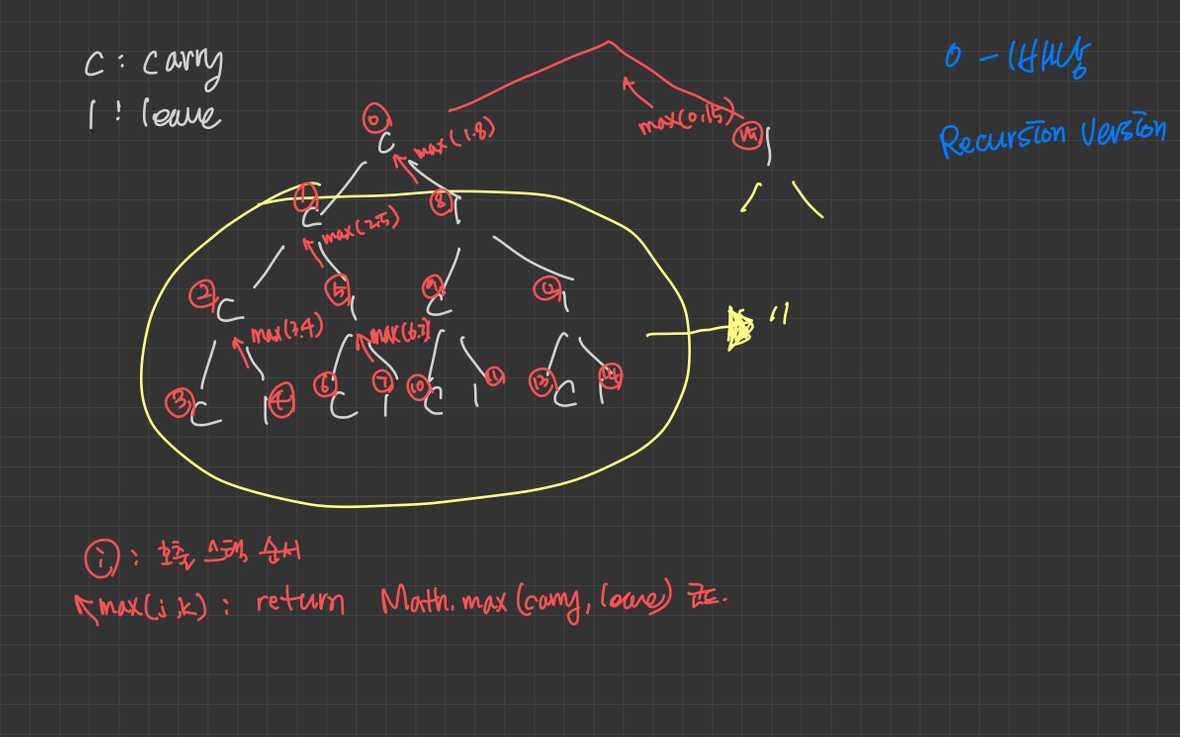 C : carry
l : leave
0 - 1 배낭
Recursion Version
⓪
C
max(1.8)
max(0,15)
⑮ l
①
C
⑧
l
max(2.5)
② C
⑤ l
⑨ C
l
max(3.4)
max(6.7)
③ C
l ④
⑥ C
⑦ l
⑩ C
⑪ l
⑬ C
⑭ l
"
ⓘ : 호출 스택 순서
↖max(j,k) : return Math.max(carry, leave)